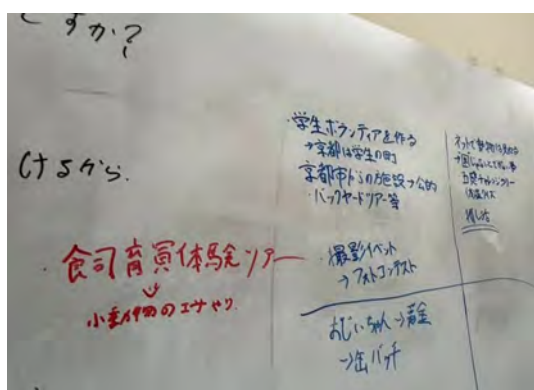 ですか?
けるから.
・飼育員体験ツアー
小動物のエサやり
・学生ボランティアを作る
→京都は学生の町
京都市からの施設→公的
・バックヤードツアー等
・撮影イベント
→フォトコンテスト
おじいちゃん→
→缶バッチ
ネットで動物は見れる
推し活